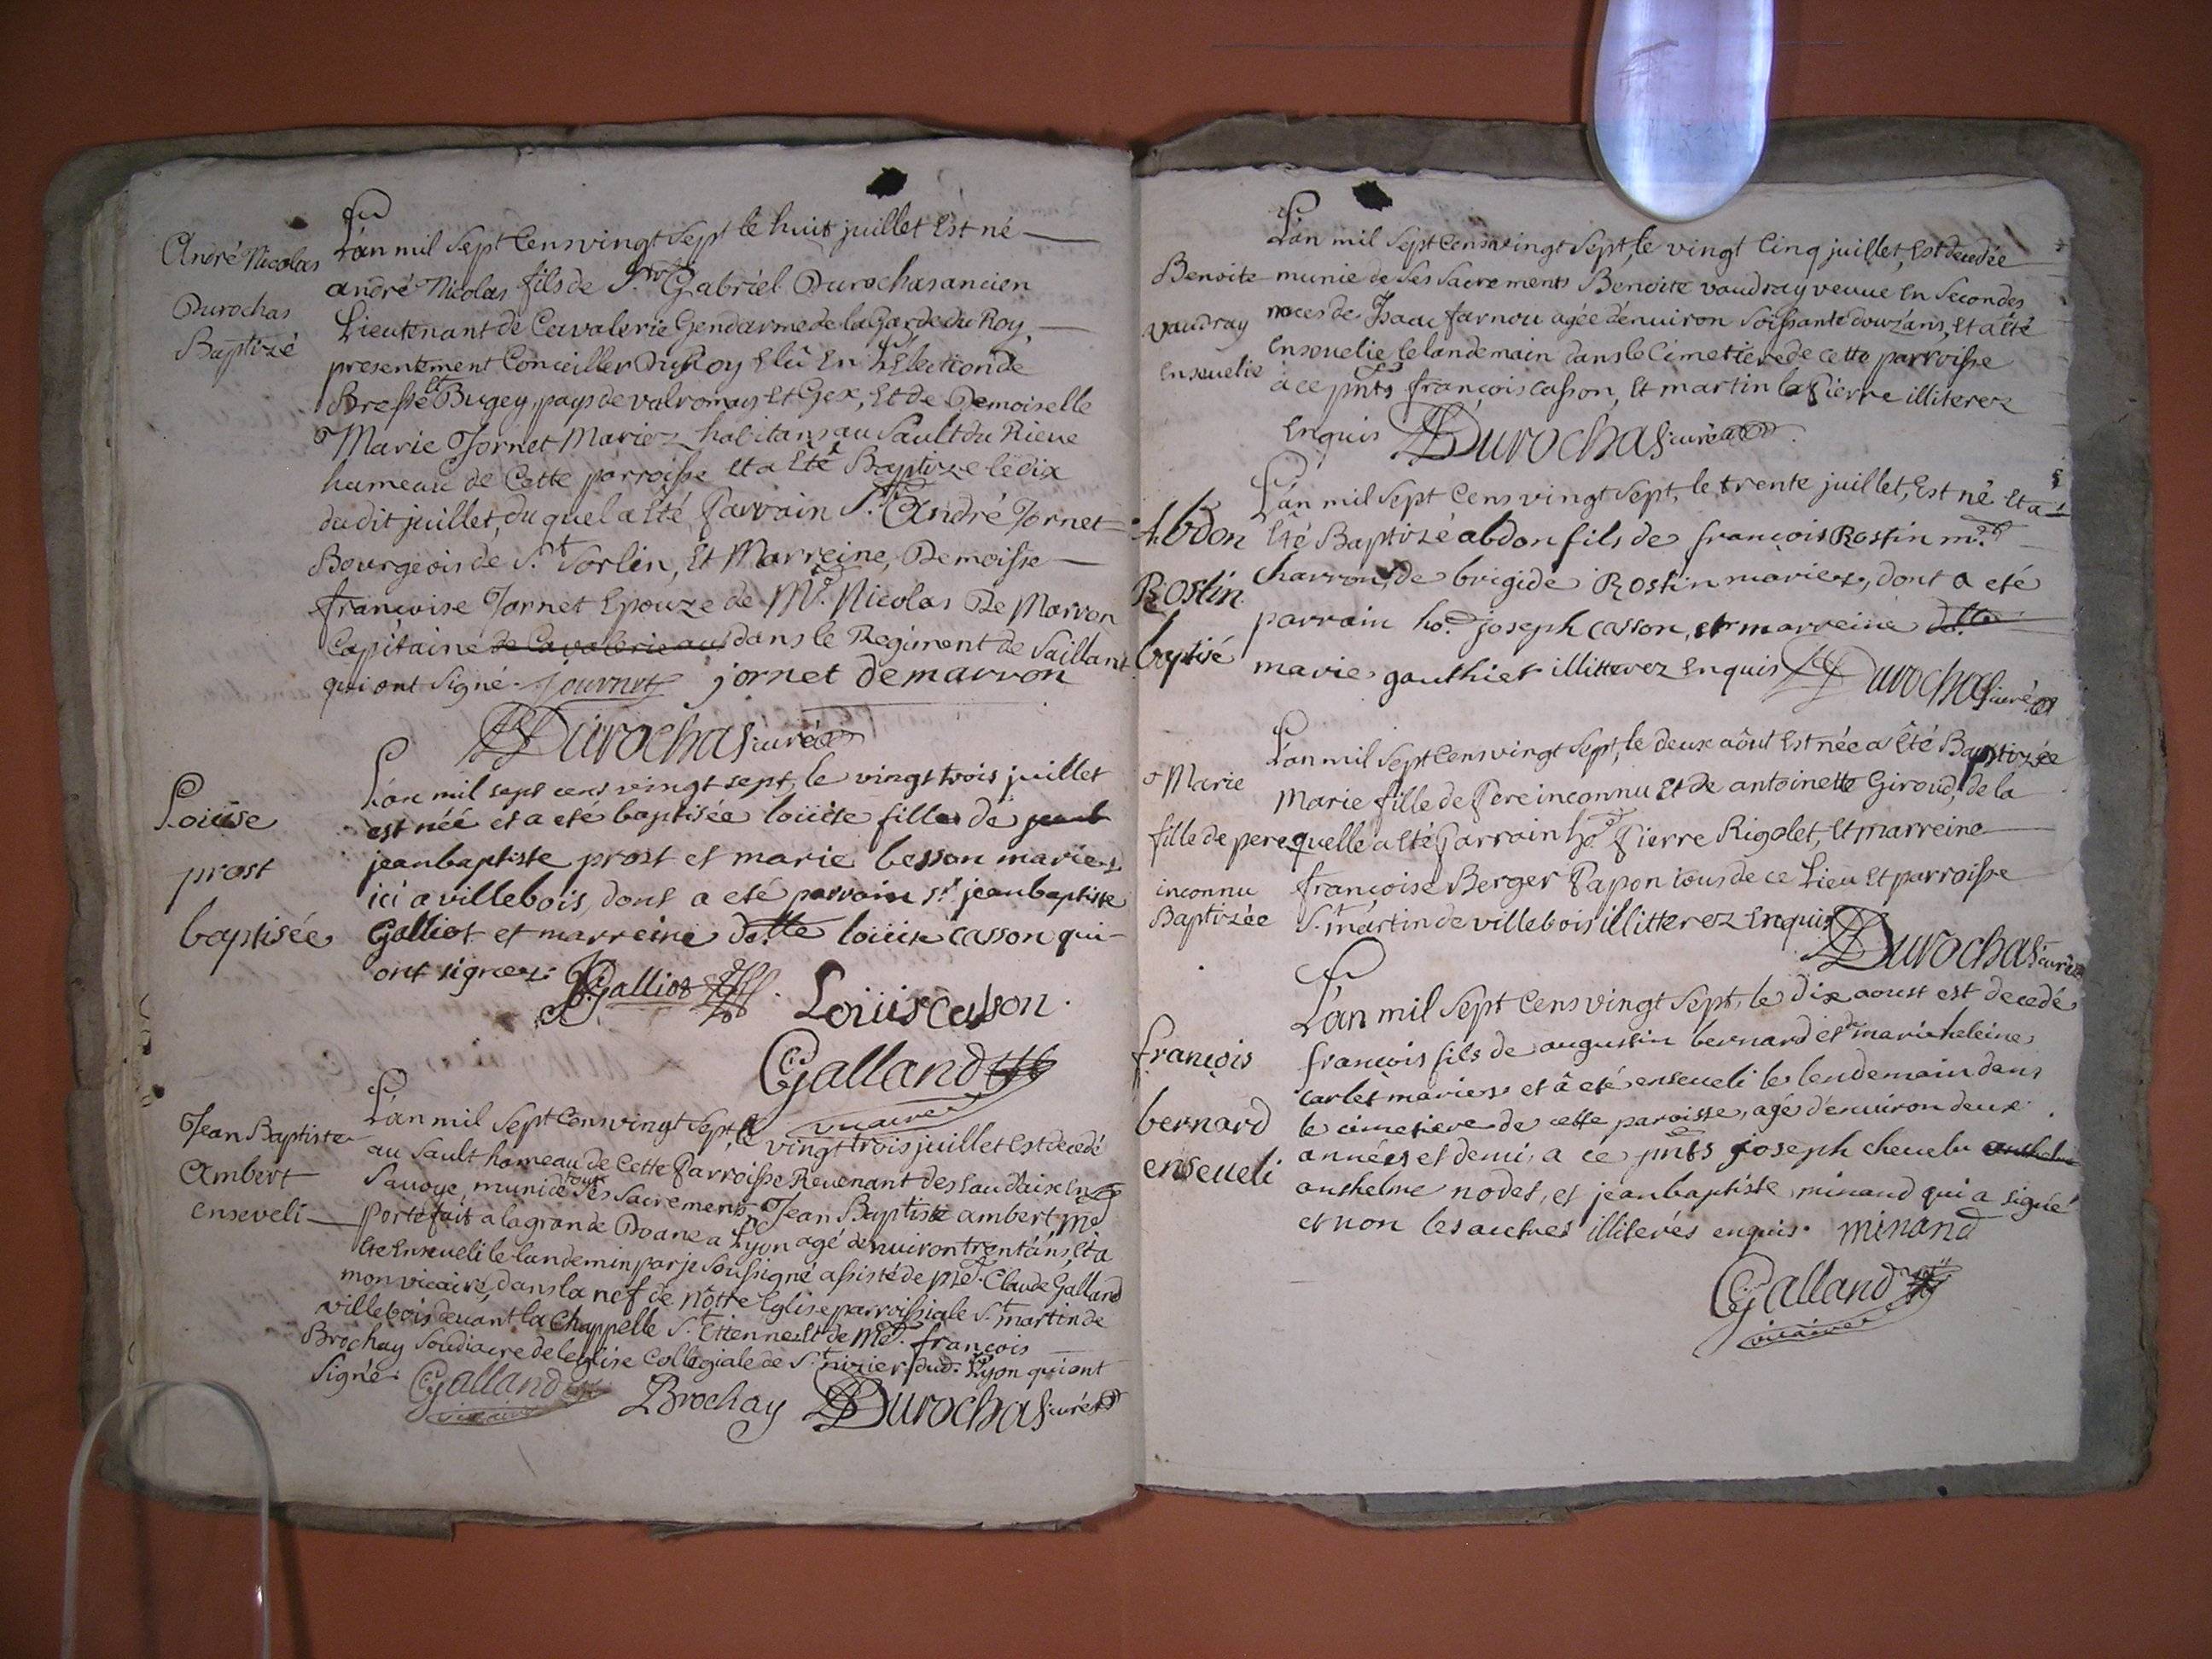 André Nicolas
Durochas
Baptizé
L'an mil Sept Cens vingt Sept le huit juillet Est né
andré Nicolas fils de Sr. Gabriel Durochas ancien
Lieutenant de Cavalerie Gendarme de la Garde du Roy,
presentement Conceiller Du Roy Elû En L'Election de
Bresse et Bugey, pays de valromey Et Gex, Et de Demoiselle
Marie Jornet Mariez habitans au Sault du Rieue
hameau de Cette parroisse Et a Eté Baptize le dix
dudit juillet, du quel a Eté Parrain Sr. André Jornet
Bourgeois de St. Sorlin, Et Marreine, Demoisse
françoise Jornet Epouze de Mr. Nicolas De Marron
Capitaine de Cavalerie au dans le Regiment de Saillant
qui ont Signé. Journet jornet demarron
Durochas curé
Loüise
prost
baptisée
L'an mil sept cens vingt sept, le vingt trois juillet
est née et a eté baptisée loüise fille de jeanb
jeanbaptiste prost et marie besson mariez
ici a villebois, dont a eté parrain sr. jeanbaptiste
Galliot et marreine delle loüise casson qui
ont signez. Galliot Loüis casson.
Galland
vicaire
Jean Baptiste
Ambert
enseveli
L'an mil Sept Cens vingt Sept, le vingt trois juillet Est decedé
au Sault hameau de Cette Parroisse Revenant des Eau d'aix En
Savoye, munide tous Ses Sacremens, Jean Baptiste ambert, me
portefait a la grande Doane a Lyon agé denuiron trent'ans, Et a
Ete Enseueli le landemin par je Soussigné assisté de Mre. Claude Galland
mon vicaire, dans la nef de nôtre Eglise parroissiale St. martin de
villebois deuant la Chappelle St. Etienne Et de Mre. françois
Brochay Soudiacre de leglise Collegiale de St. nizier dud. Lyon qui ont
Signé. Galland vicaire Brochay Durochas curé
Benoite
vaudray
Enseuelie
L'an mil Sept Cens vingt Sept, le vingt Cinq juillet, Est decedée
munie de Ses Sacrements Benoite vaudray veuue En Secondes
noces de Isaac farnou agée dénuiron Soissante douz'ans, Et a Eté
Enseuelie le landemain dans le Cimetiere de cette parroisse
a ce pnts françois casson, Et martin la Pierre illiterez
Enquis Durochas curé
Abdon
Rostin
baptisé
L'an mil Sept Cens vingt Sept, le trente juillet, Est né Et a
Eté Baptizé abdon fils de françois Rostin me.
charron, de brigide Rostin mariez, dont a eté
parrain ho. joseph casson, et marreine delle
marie gauthier illitterez enquis Durochas curé
Marie
fille de pere
inconnu
Baptizée
L'an mil Sept Cens vingt Sept, le deux aôut Est née a Eté Baptizée
Marie fille de Pere inconnu Et de antoinette Giroud, de la
quelle a Eté Parrain ho. Pierre Rigolet, Et marreine
françoise Berger Papon tous de ce Lieu Et parroisse
St. martin de villebois illitterez Enquis Durochas curé
françois
bernard
enseueli
L'an mil Sept Cens vingt Sept, le dix aoust est decedé
françois fils de augustin bernard et de marieheleine
carlet mariez et â eté enseueli le lendemain dans
le cimetiere de cette paroisse, agé d'enuiron deux
années et demi, a ce pnts joseph cheuelu anthelm
anthelme nodet, et jeanbaptiste minand qui a signé
et non les autres illiterés enquis. minand
Galland
vicaire